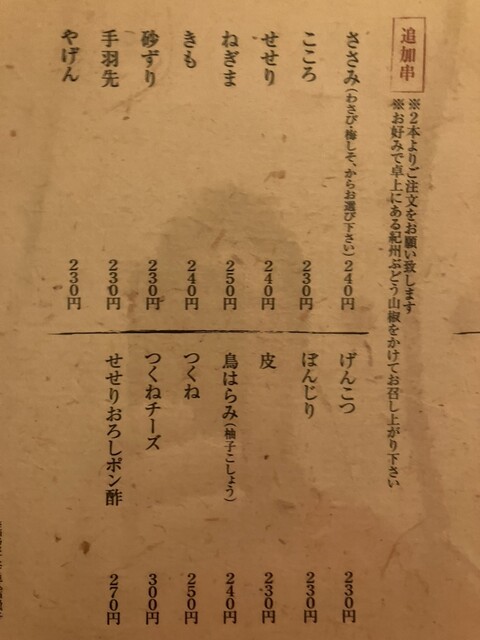 追加串
※2本よりご注文をお願い致します
※お好みで卓上にある紀州ぶどう山椒をかけてお召し上がり下さい
ささみ(わさび・梅しそ、からお選び下さい)240円
こころ 230円
せせり 240円
ねぎま 250円
きも 240円
砂ずり 230円
手羽先 230円
やげん 230円
げんこつ 230円
ぼんじり 230円
皮 230円
鳥はらみ(柚子こしょう) 240円
つくね 250円
つくねチーズ 300円
せせりおろしポン酢 270円